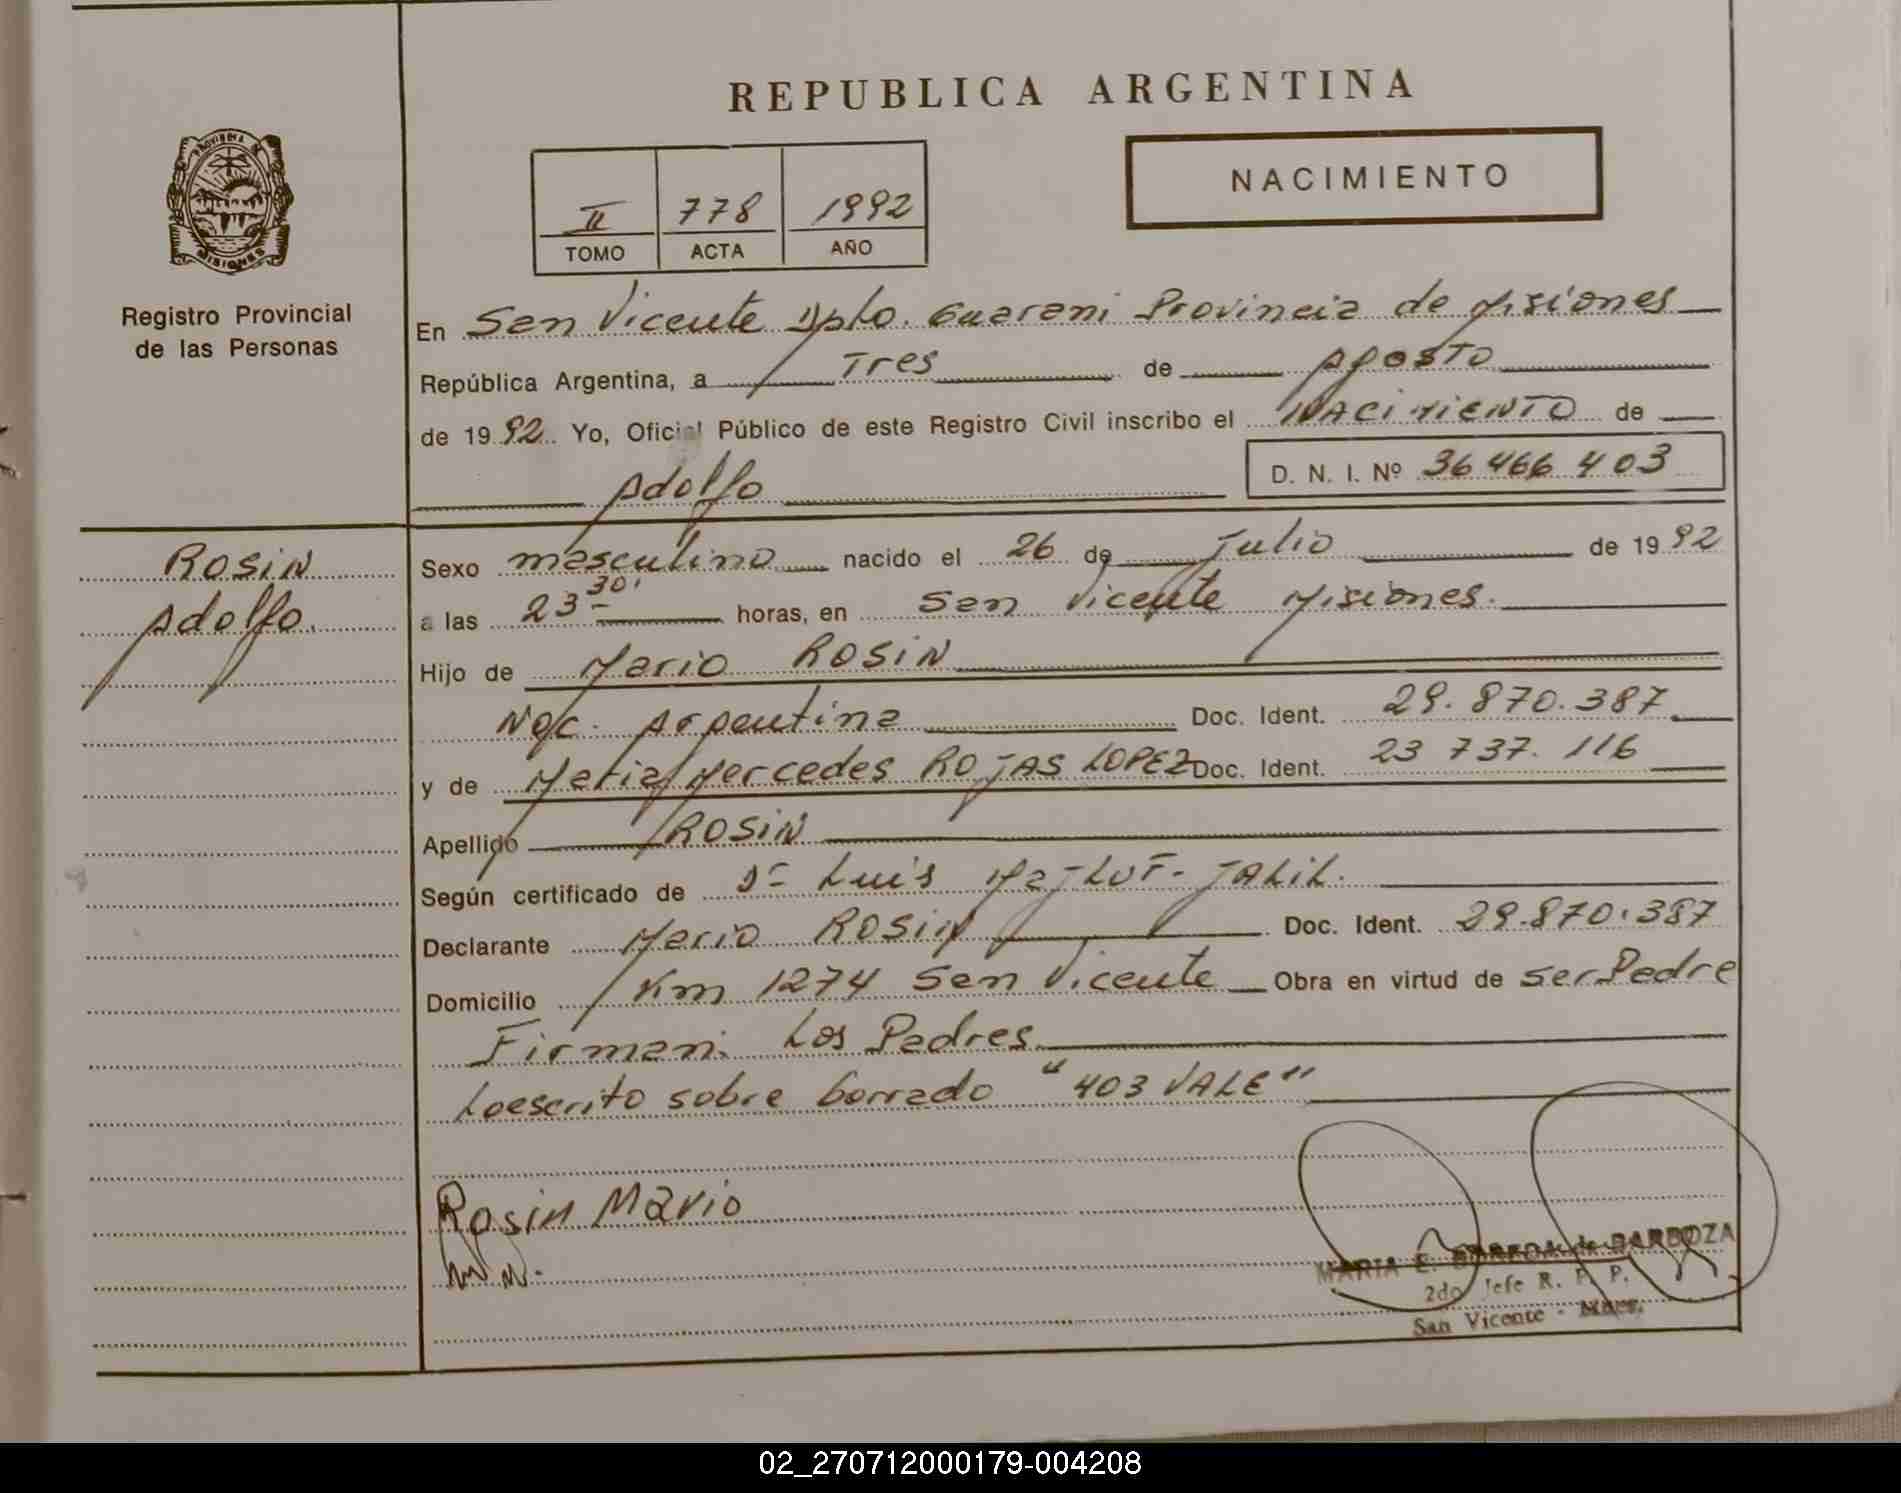 REPUBLICA ARGENTINA
NACIMIENTO
II 778 1992
TOMO ACTA AÑO
PROVINCIA DE
MISIONES
Registro Provincial
de las Personas
En San Vicente Dpto. Guarani Provincia de Misiones
República Argentina, a Tres de Agosto
de 1992 Yo, Oficial Público de este Registro Civil inscribo el NACIMIENTO de
Adolfo D. N. I. Nº 36 466 403
ROSIN
Adolfo.
Sexo masculino nacido el 26 de Julio de 1992
a las 23 30' horas, en San Vicente Misiones.
Hijo de Mario ROSIN
Nac. Argentina Doc. Ident. 29.870.387
y de Maria Mercedes ROJAS LOPEZ Doc. Ident. 23 737. 116
Apellido ROSIN
Según certificado de Dr Luis MajLUF- JALIL.
Declarante Mario ROSIN Doc. Ident. 29.870.387
Domicilio Km 1274 San Vicente Obra en virtud de ser Padre
Firman: Los Padres.
Lo escrito sobre borrado "403 VALE"
Rosin Mario
MARIA E. de BARBOZA
2do Jefe R. P. P.
San Vicente - Mnes.
02_270712000179-004208